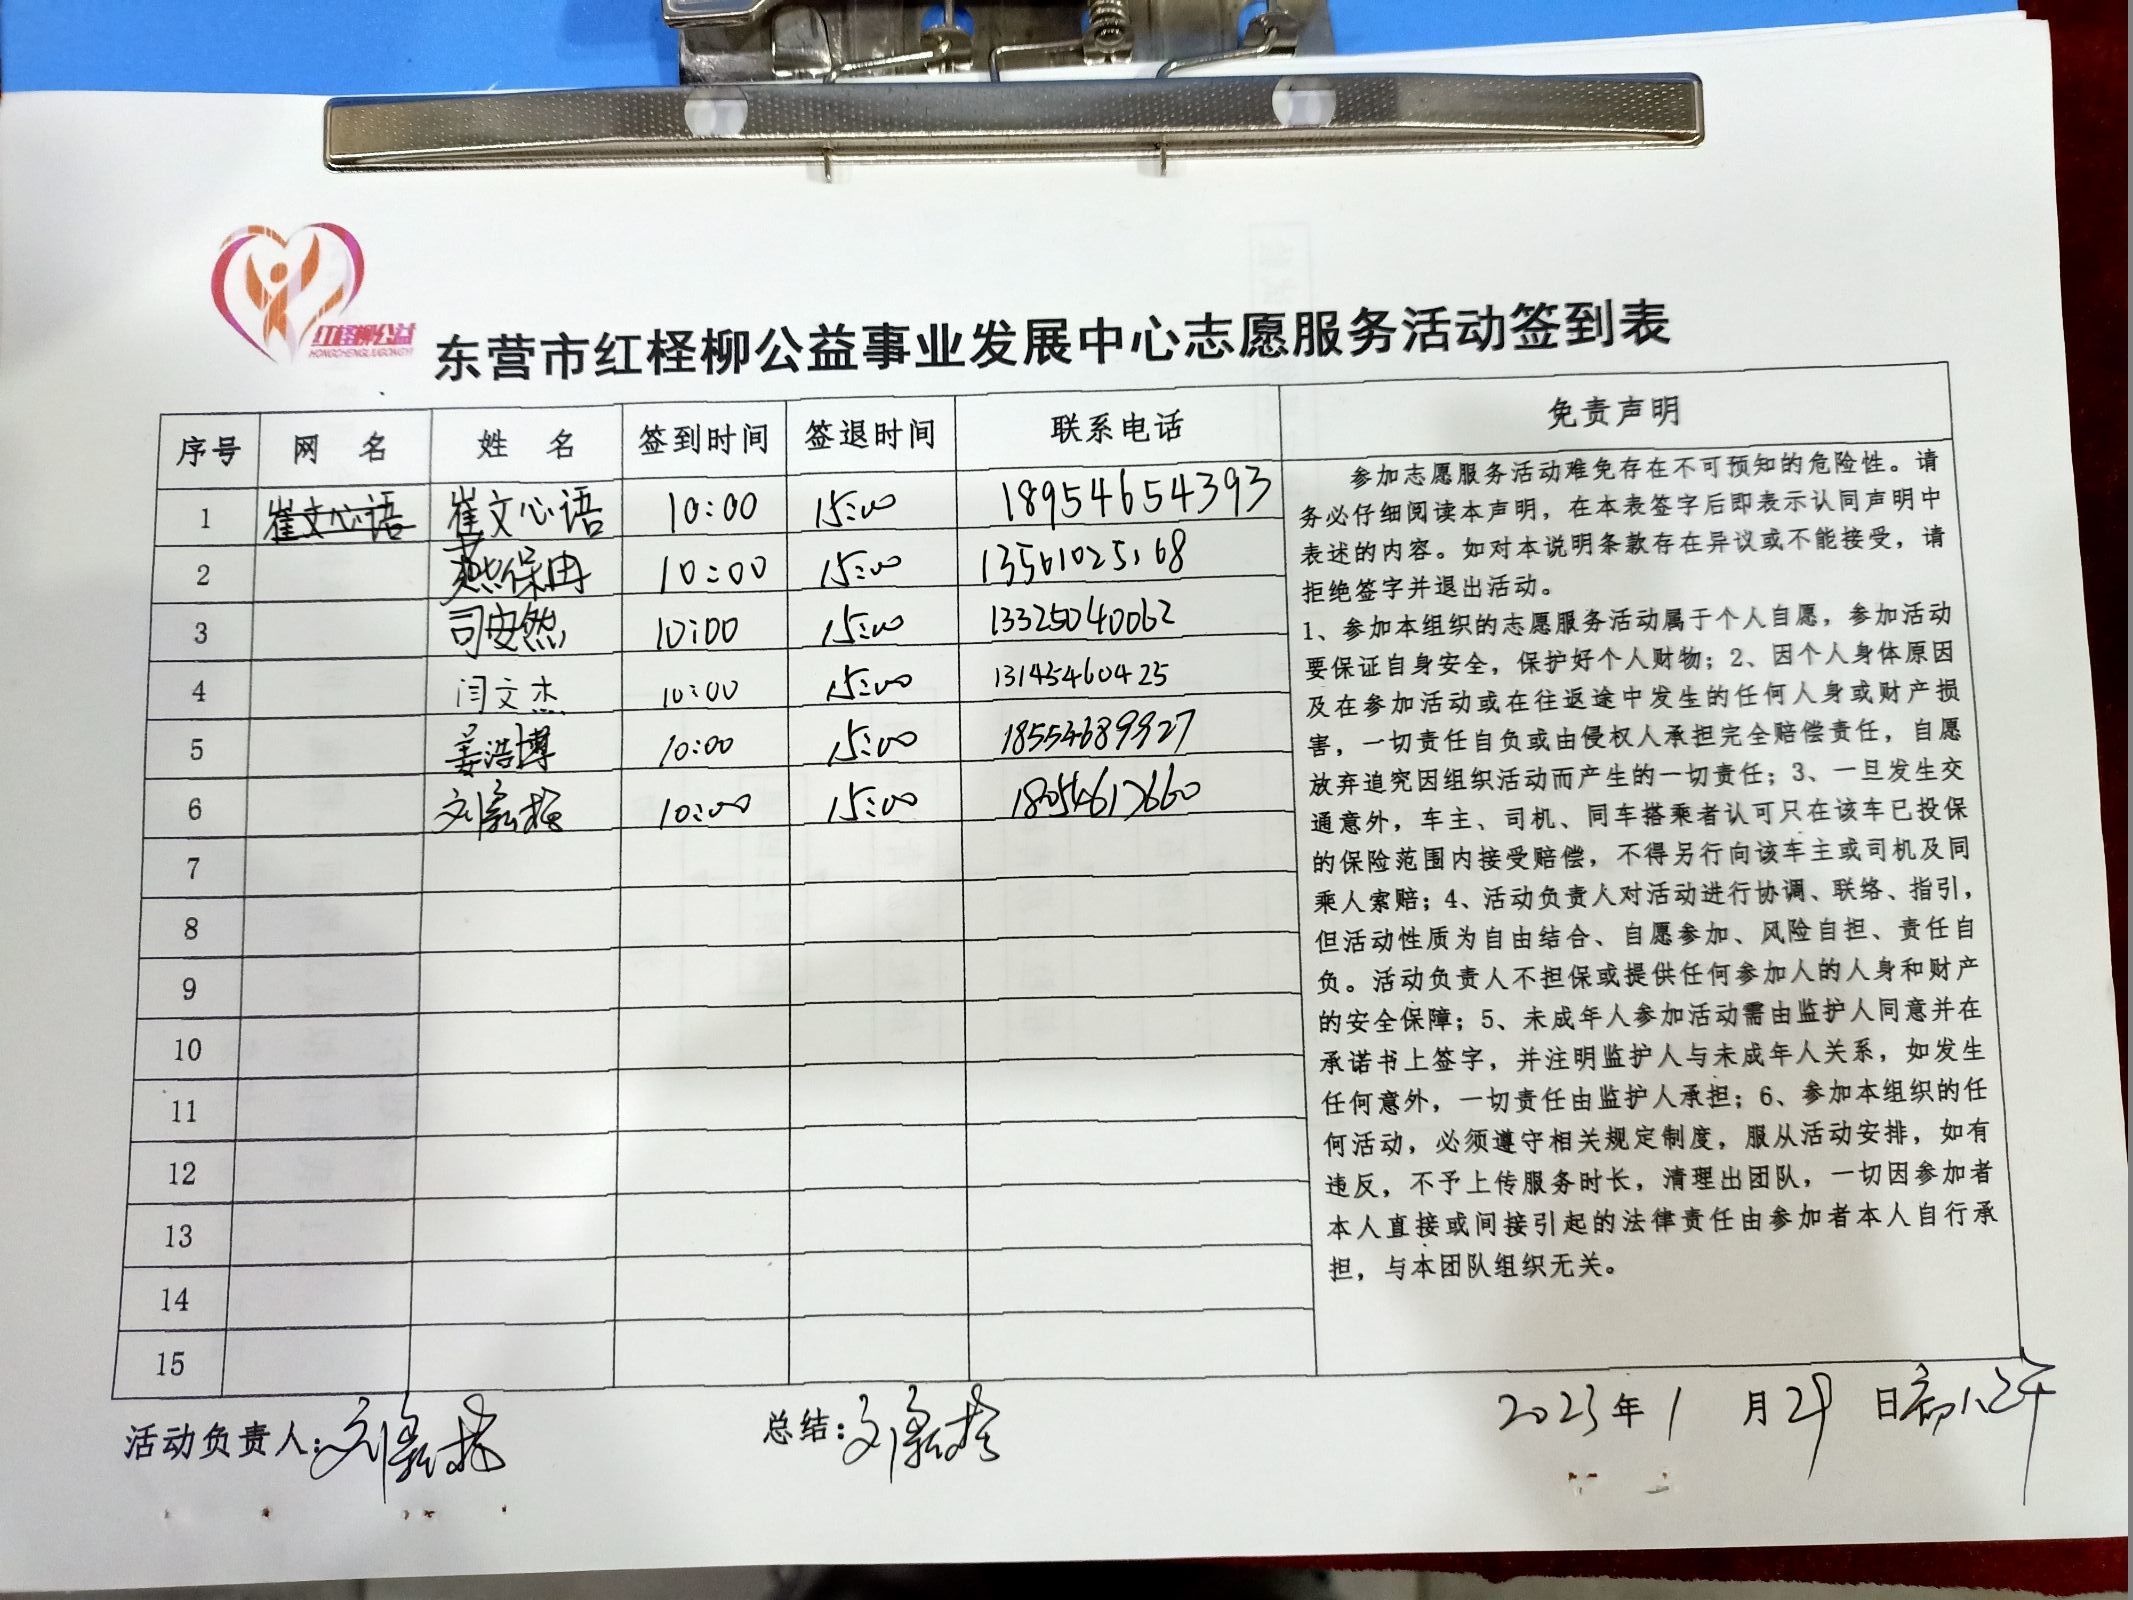 红柽柳公益
HONGCHENGLIUGONGYI
东营市红柽柳公益事业发展中心志愿服务活动签到表
序号 网 名 姓 名 签到时间 签退时间 联系电话 免责声明
1 崔文心语 崔文心语 10:00 15:00 18954654393
2 燕保冉 10:00 15:00 13561025168
3 司安然 10:00 15:00 13325040062
4 闫文杰 10:00 15:00 13145460425
5 姜浩博 10:00 15:00 18554689927
6 10:00 15:00 18054617660
7
8
9
10
11
12
13
14
15
参加志愿服务活动难免存在不可预知的危险性。请
务必仔细阅读本声明，在本表签字后即表示认同声明中
表述的内容。如对本说明条款存在异议或不能接受，请
拒绝签字并退出活动。
1、参加本组织的志愿服务活动属于个人自愿，参加活动
要保证自身安全，保护好个人财物；2、因个人身体原因
及在参加活动或在往返途中发生的任何人身或财产损
害，一切责任自负或由侵权人承担完全赔偿责任，自愿
放弃追究因组织活动而产生的一切责任；3、一旦发生交
通意外，车主、司机、同车搭乘者认可只在该车已投保
的保险范围内接受赔偿，不得另行向该车主或司机及同
乘人索赔；4、活动负责人对活动进行协调、联络、指引，
但活动性质为自由结合、自愿参加、风险自担、责任自
负。活动负责人不担保或提供任何参加人的人身和财产
的安全保障；5、未成年人参加活动需由监护人同意并在
承诺书上签字，并注明监护人与未成年人关系，如发生
任何意外，一切责任由监护人承担；6、参加本组织的任
何活动，必须遵守相关规定制度，服从活动安排，如有
违反，不予上传服务时长，清理出团队，一切因参加者
本人直接或间接引起的法律责任由参加者本人自行承
担，与本团队组织无关。
活动负责人： 总结： 2023年1月29日